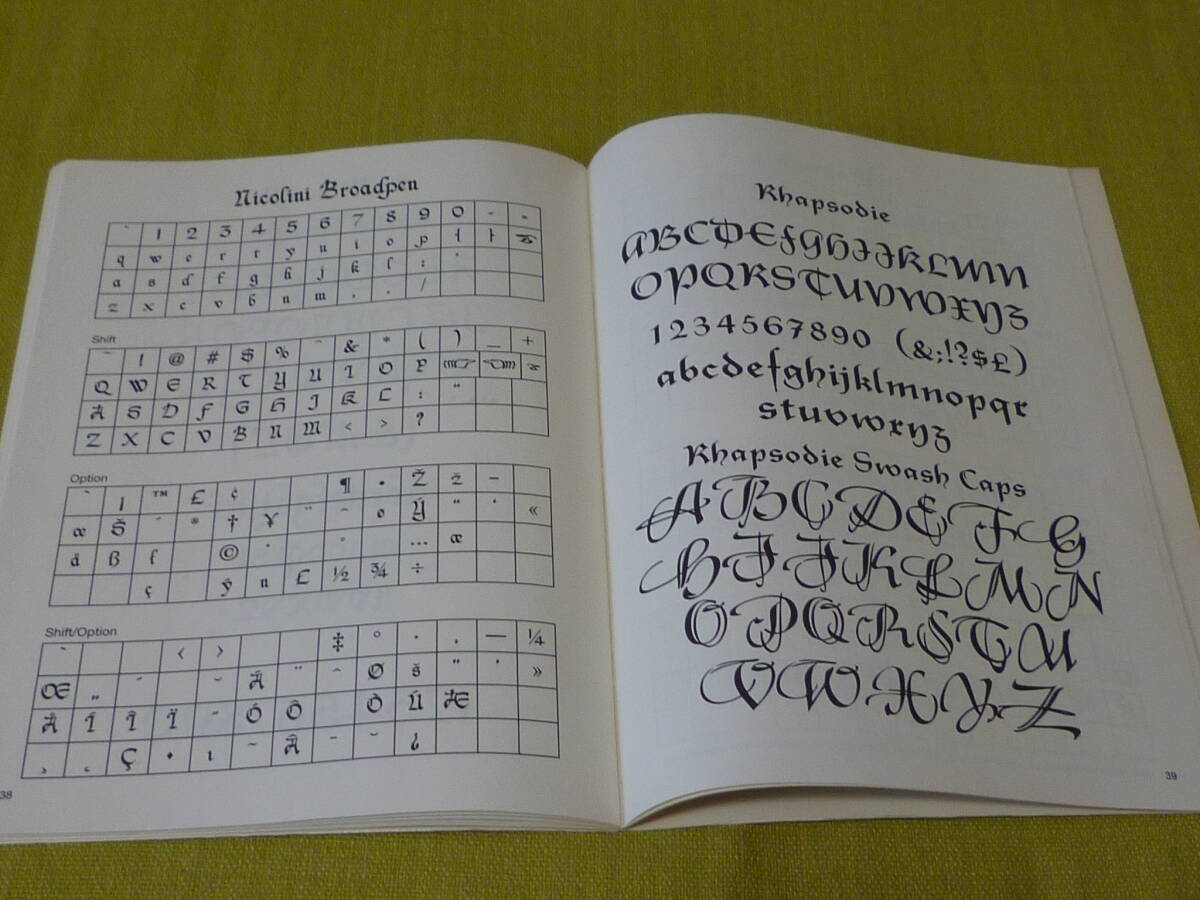 Nicolini Broadpen
` 1 2 3 4 5 6 7 8 9 0 - -
q w e r t y u i o p
a s d f g h j k l ; '
z x c v b n m , . /
Shift
~ ! @ # $ % ^ & * ( ) _ +
Q W E R T Y U I O P
A S D F G H J K L : "
Z X C V B N M < > ?
Option
` ¡ ™ £ ¢ ¶ • Ž ž –
œ Š ´ ® † ¥ ¨ ˆ ø Ý “ ‘ «
å ß ƒ © ˙ ° … æ
ç ÿ n £ ½ ¾ ÷
Shift/Option
` ‹ › ‡ ° · ‚ — ¼
Œ „ ˝ ˇ Ä ¨ ˆ Ø š ” ’ »
Å Í Î Ï ˝ Ó Ô Ò Ú Æ
¸ ˛ Ç • ı ˜ Â ¯ ˘ ¿
38
Rhapsodie
ABCDEFGHIJKLMN
OPQRSTUVWXYZ
1234567890 (&;!?$£)
abcdefghijklmnopqr
stuvwxyz
Rhapsodie Swash Caps
ABCDEFG
HIJKLMN
OPQRSTU
VWXYZ
39